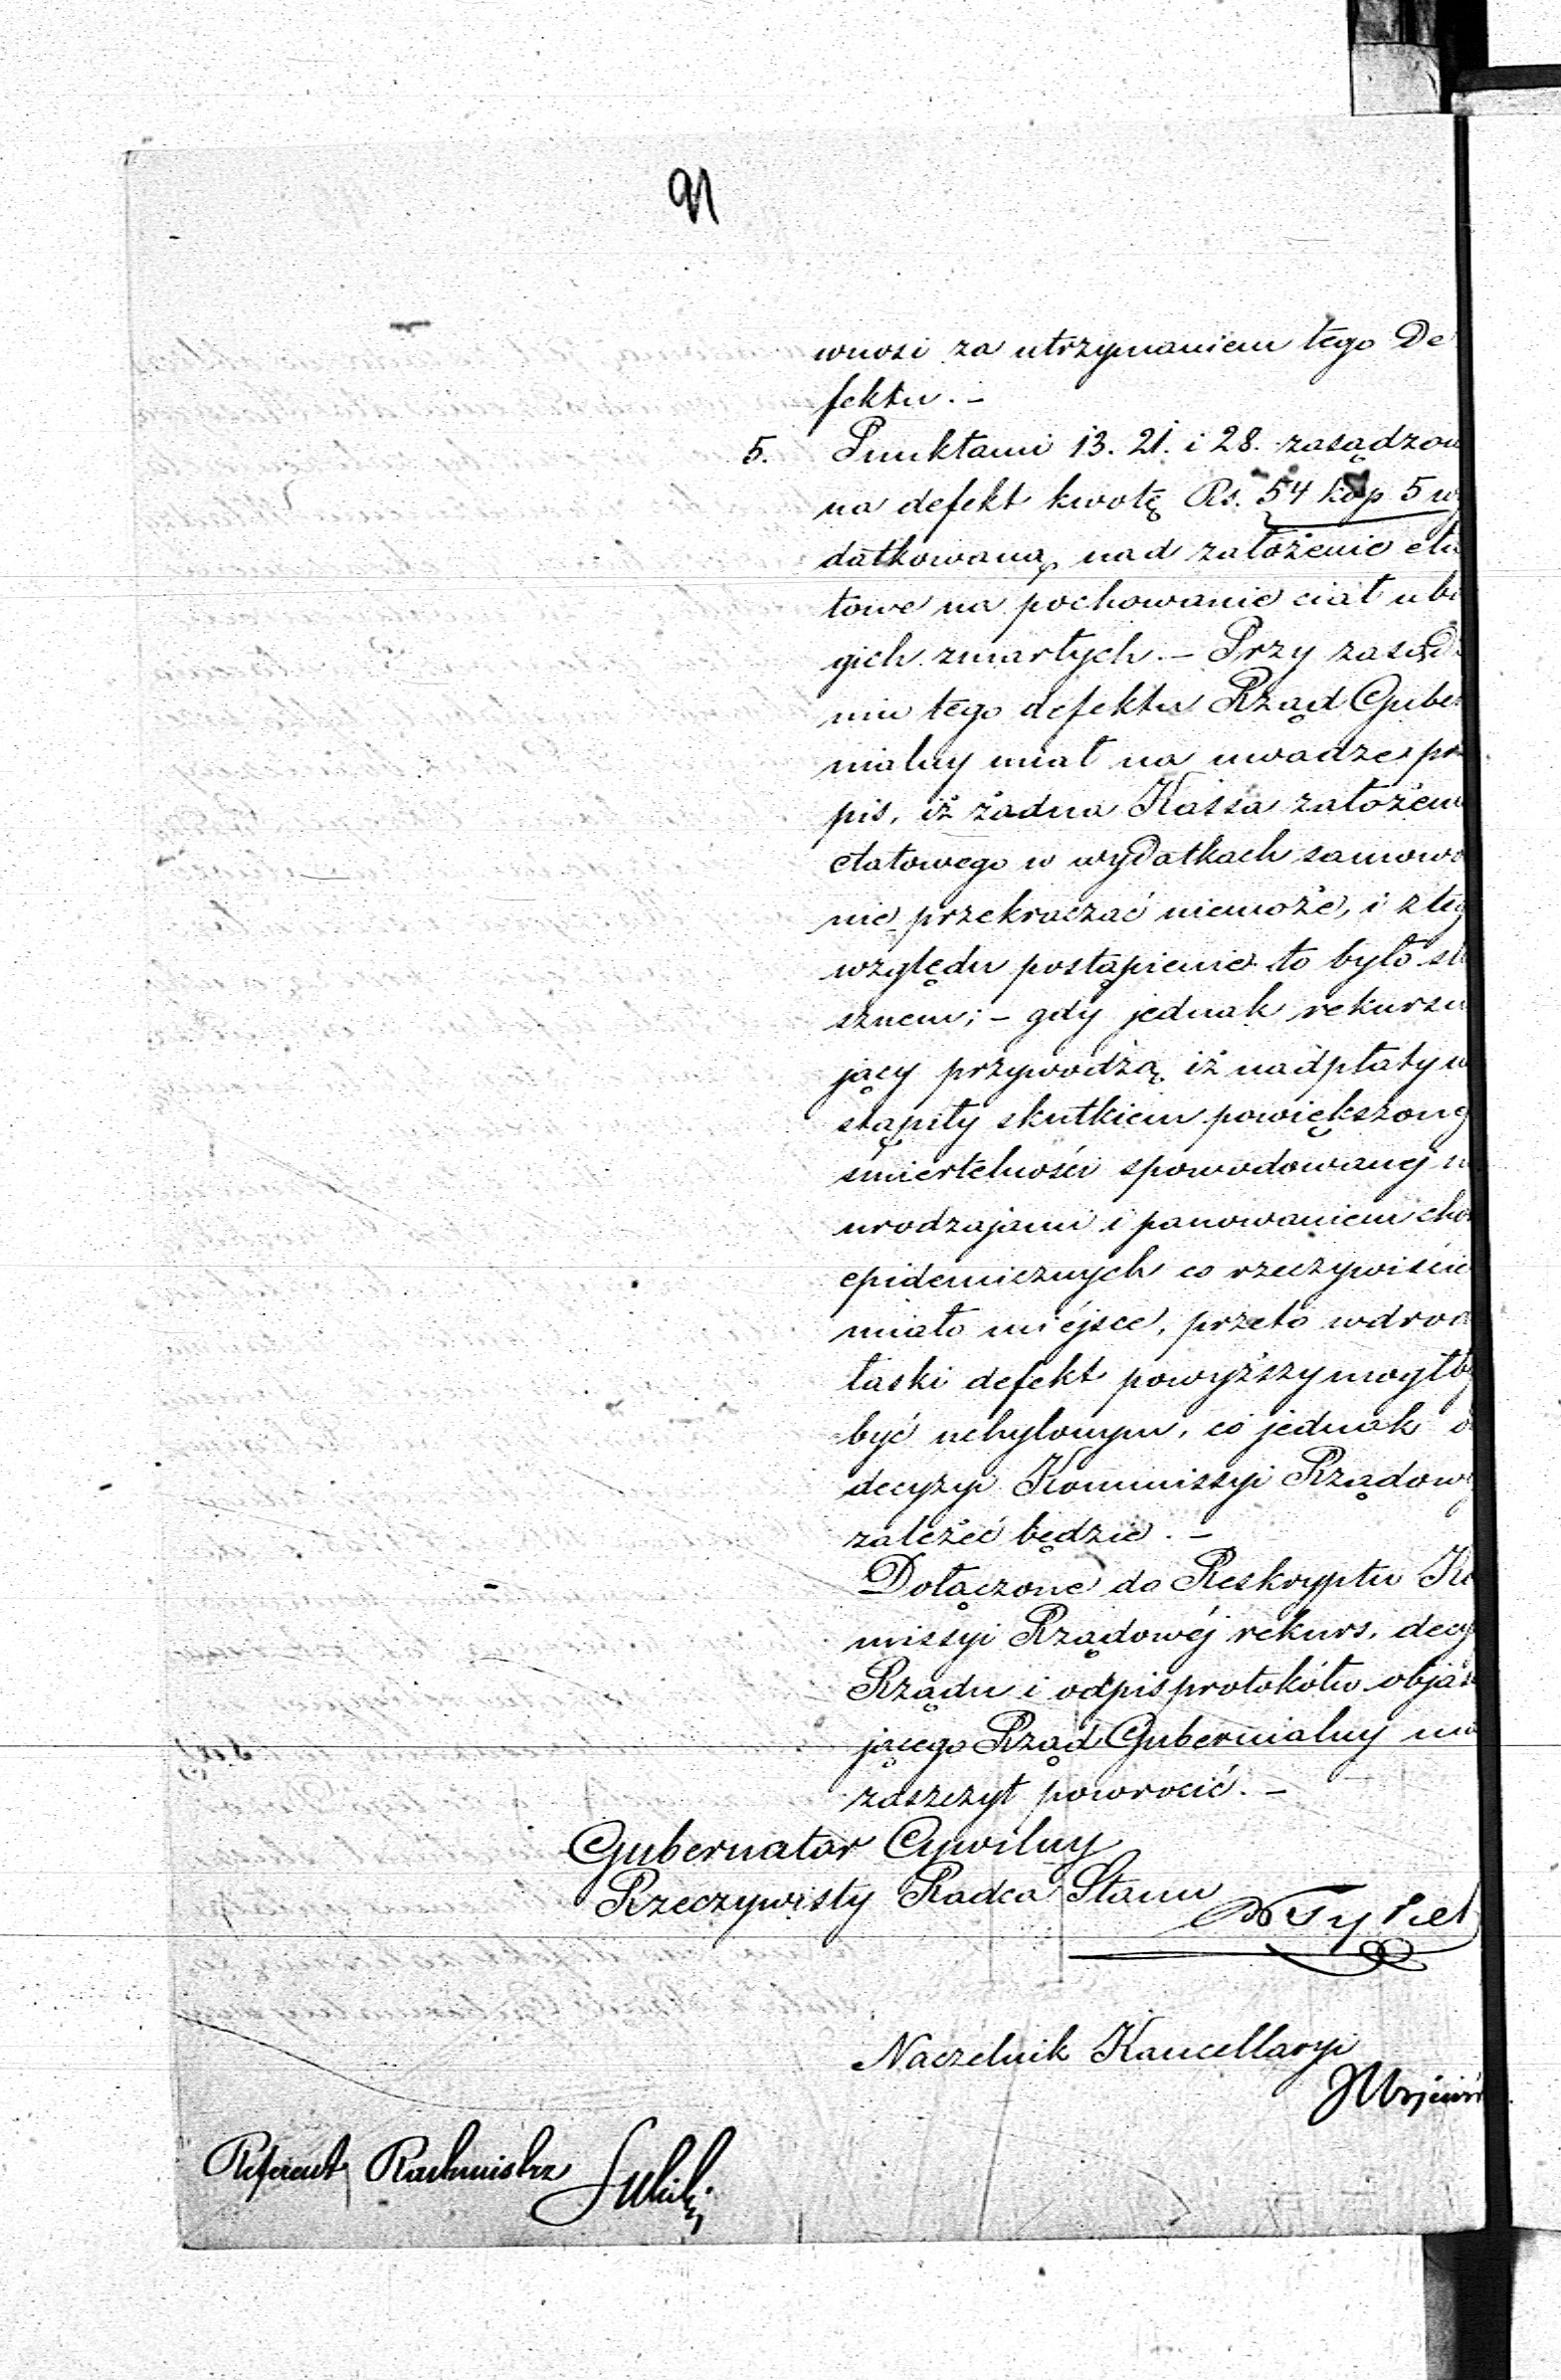 91
wnosi za utrzymaniem tego De
fektu. –
5. Punktami 13. 21. i 28. zasądzon
na defekt kwotę Rs. 54 kop 5 wy
datkowaną nad założenie eta
towe na pochowanie ciał ubo
gich zmarłych. – Przy zasądz
niu tego defektu Rząd Guber
nialny miał na uwadze prze
pis, iż żadna Kassa założeni
etatowego w wydatkach samowo
nie przekraczać niemoże, i z teg
względu postąpienie to było słu
sznem; – gdy jednak rekursu
jący przywodzą iż nadpłaty na
stąpiły skutkiem powiększone
śmiertelności spowodowanej nie
urodzajami i panowaniem cho
epidemicznych co rzeczywiście
miało miéjsce, przeto wdrod
łaski defekt powyższy mógłby
być uchylonym, co jednak od
decyzyi Kommissyi Rządowéj
zależéć będzie. –
Dołączone do Reskryptu Ko
missyi Rządowéj rekurs, decy
Rządu i odpis protokółu objaś
jącego Rząd Gubernialny ma
zaszczyt powrócić. –
Gubernator Cywilny
Rzeczywisty Radca Stanu
Naczelnik Kancellaryi
Referent Rachmistrz